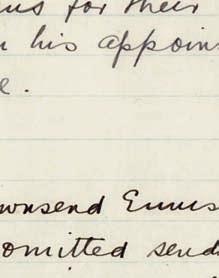 for their
his appoin
e.
wnsend Ennis
omitted send